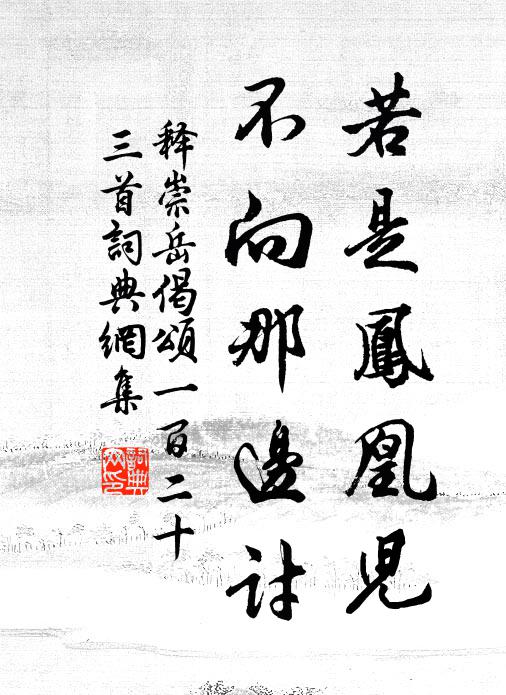 若是鳳凰児
不向那邊討
释崇岳偈頌一百二十
三首詞典網集
詞典
网印